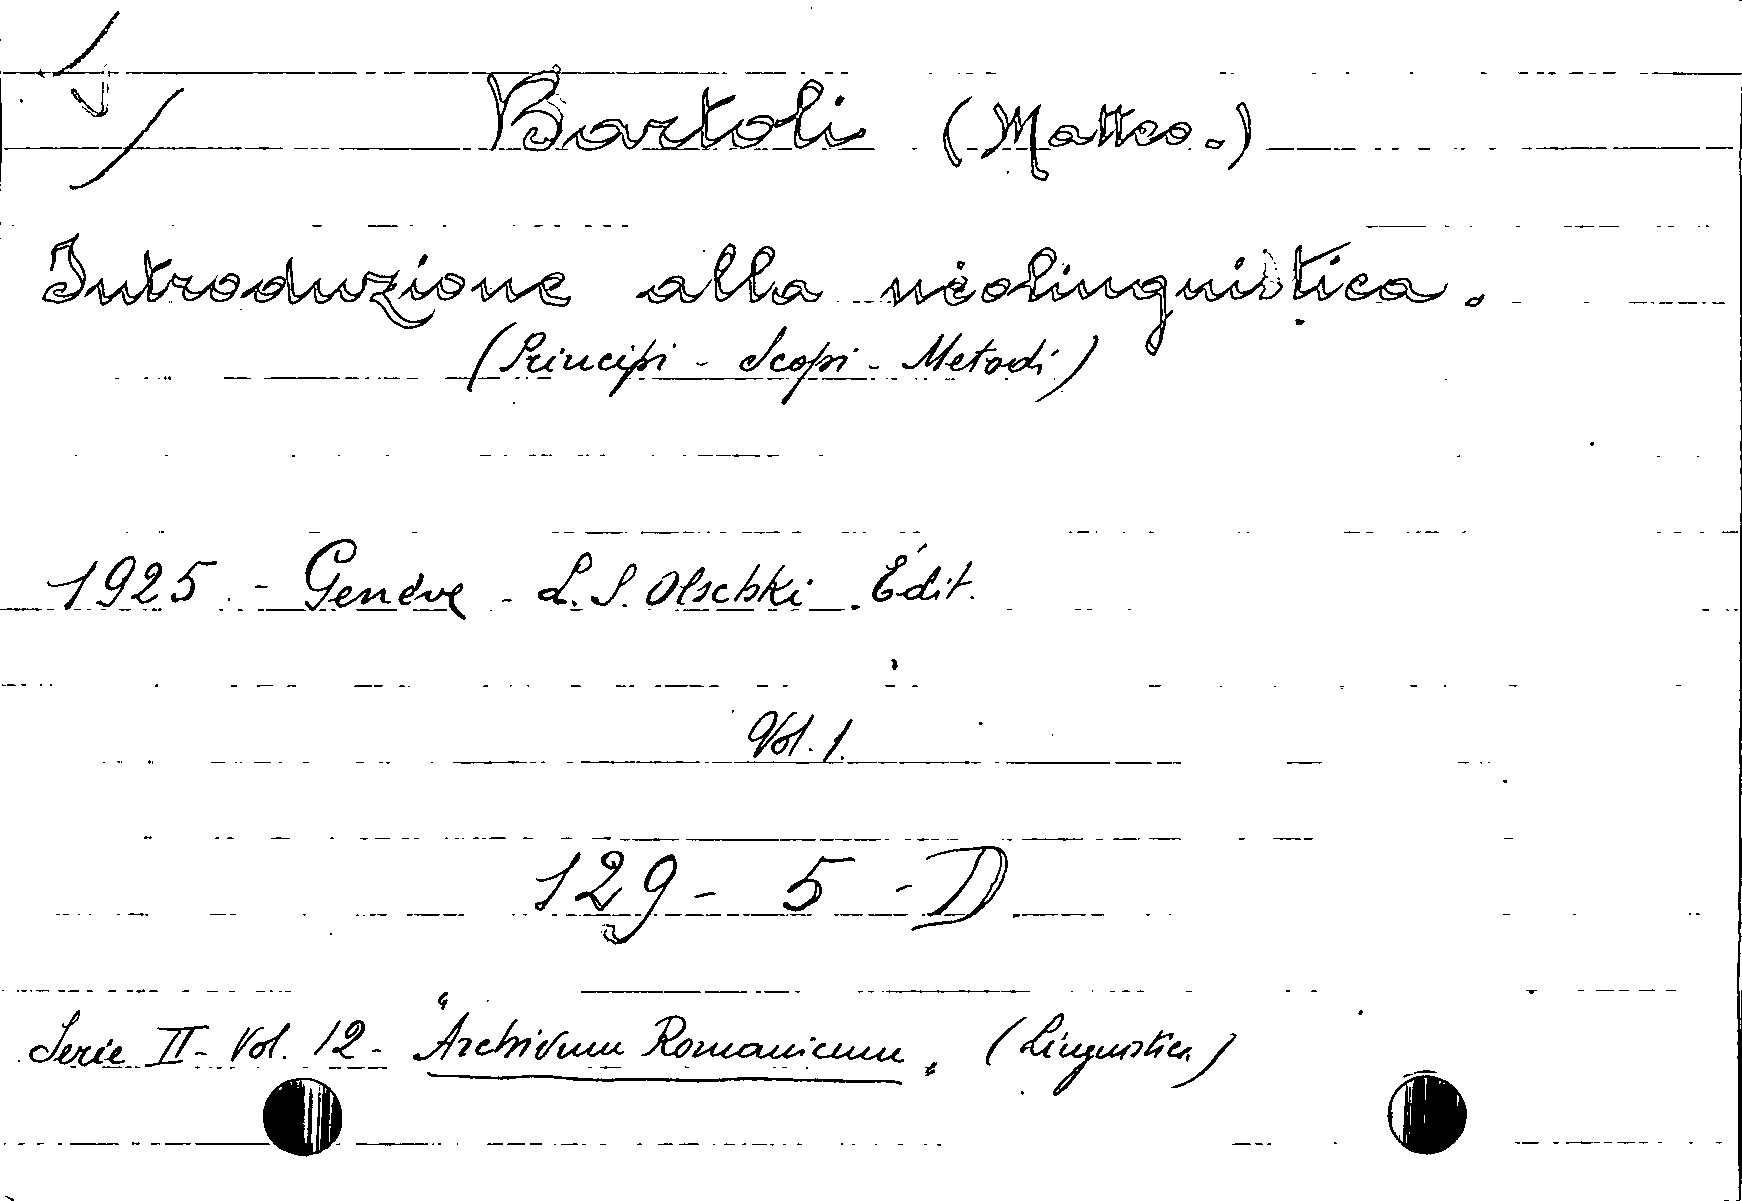 Bartoli (Matteo.)
Introduzione alla neolinguistica.
(Principi - Scopi - Metodi)
1925 - Genève - L. S. Olschki. Édit.
Vol. 1.
129 - 5 - D
Serie II - Vol. 12 - "Archivum Romanicum" (Linguistica)